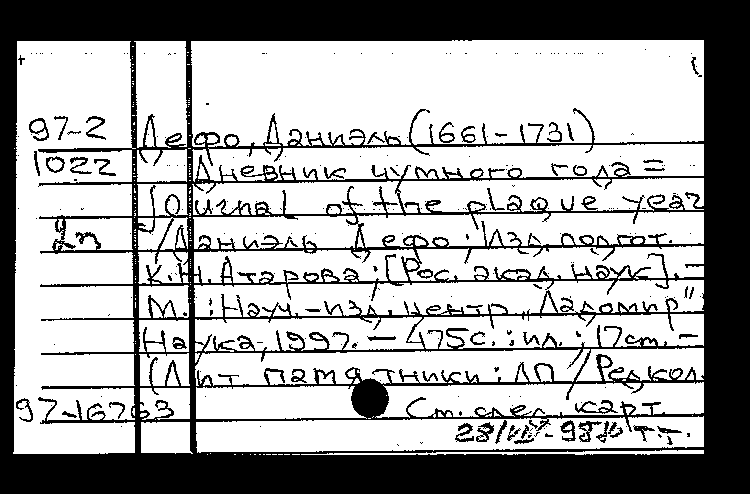 97-2 Дефо, Даниэль (1661-1731)
1022 Дневник чумного года =
Journal of the plaque year
2п /Даниэль Дефо; Изд. подгот.
К.Н. Атарова; [Рос. акад. наук]. -
М. : Науч.-изд. центр "Ладомир" :
Наука, 1997. - 475с. : ил. ; 17см. -
(Лит. памятники : ЛП / Редкол.
97-16763 См. след. карт.